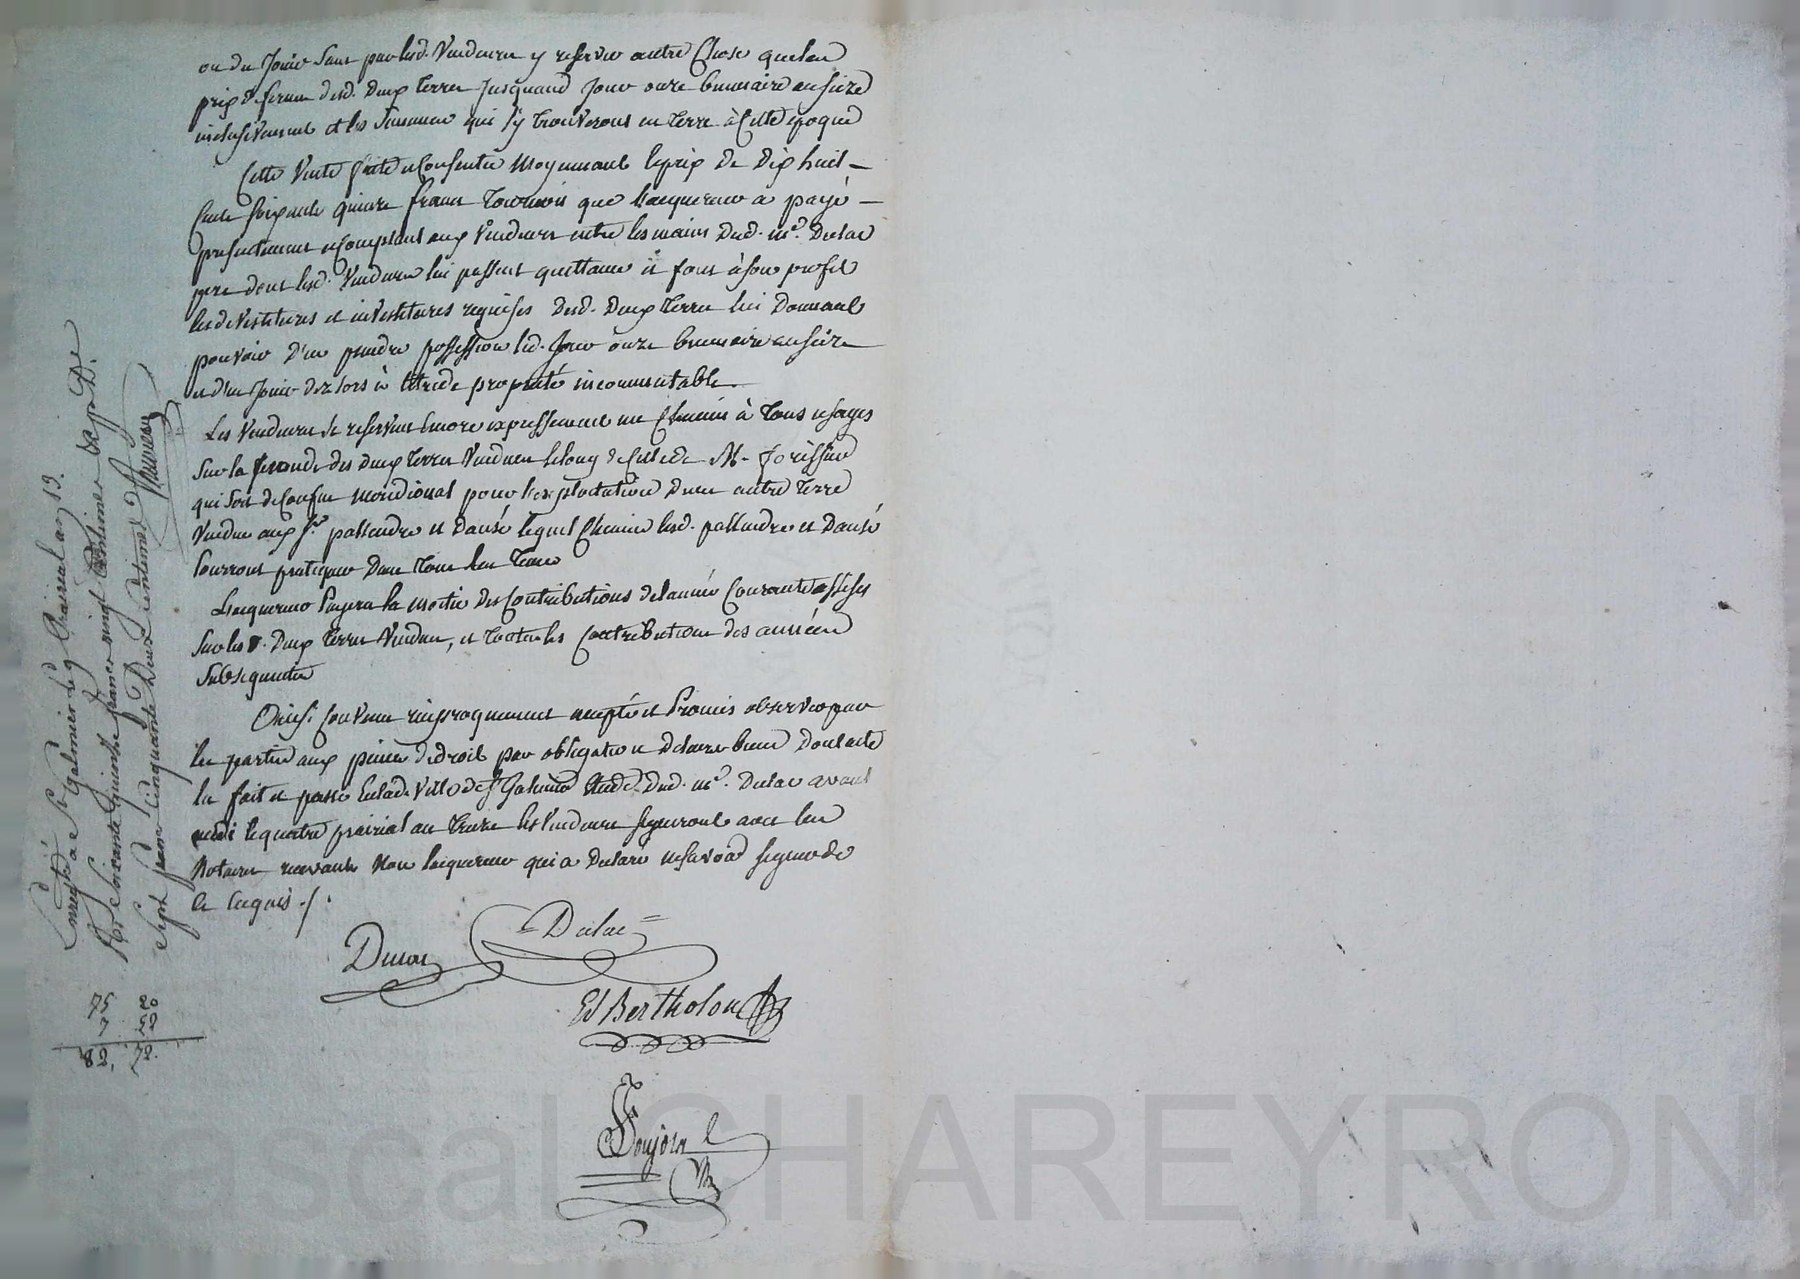 ou du Jouir Sans par lesd. Vendeurs y reserver autre Chose que leu
prix de ferme desd. Deux terres Jusquaud Jour onze brumaire an quatorze
inclusivement et les Semences qui s'y trouveront en terre à Cette époque
Cette Vente faite et Consentie Moyennant le prix de Dix huit –
Cents soixante quinze francs tournois que l'acquereur a payé –
présentement et Comptant aux Vendeurs entre les mains Dud. me. Dulac
pere dont lesd. Vendeurs lui passent quittance et font à son profit
les devestitures et investitures requises Desd. Deux terres lui Donnant
pouvoir d'en prendre possession led. Jour onze brumaire
et d'en Jouir dez lors à titre de propriété incommutable.
Les Vendeurs se reservent encore expressement un Chemin à tous usages
Sur la seconde des deux terres Vendues le long de Celle de M. forissier
qui Sert de Confin meridional pour l'exploitation d'une autre terre
Vendue aux Srs. passendre et Dansé lequel Chemin lesd. passendre et Dansé
Pourront pratiquer Dans tous les tems
L'acquereur Payera la moitié des Contributions de l'année Courante assises
Sur les d. Deux terres Vendues, et toutes les Contributions des années
Subsequentes
Ainsi Convenu reciproquement accepté et Promis observer par
les parties aux peines de droit par obligation de leurs biens Dont acte
lu fait et passé En lad. Ville de St Galmier Etude Dud. me. Dulac avant
midi le quatre prairial an treize les Vendeurs signeront avec les
Notaires recevants Non l'acquereur qui a Declaré ne savoir signer de
ce Enquis ./.
Duroz
= Dulac =
Ed Bertholon
Enregistré a St Galmier le 9 Prairial an 13.
Soixante quinze francs vingt centimes
Sept francs Cinquante Deux Centimes
75 20
7 52
82, 72.
Pascal CHAREYRON